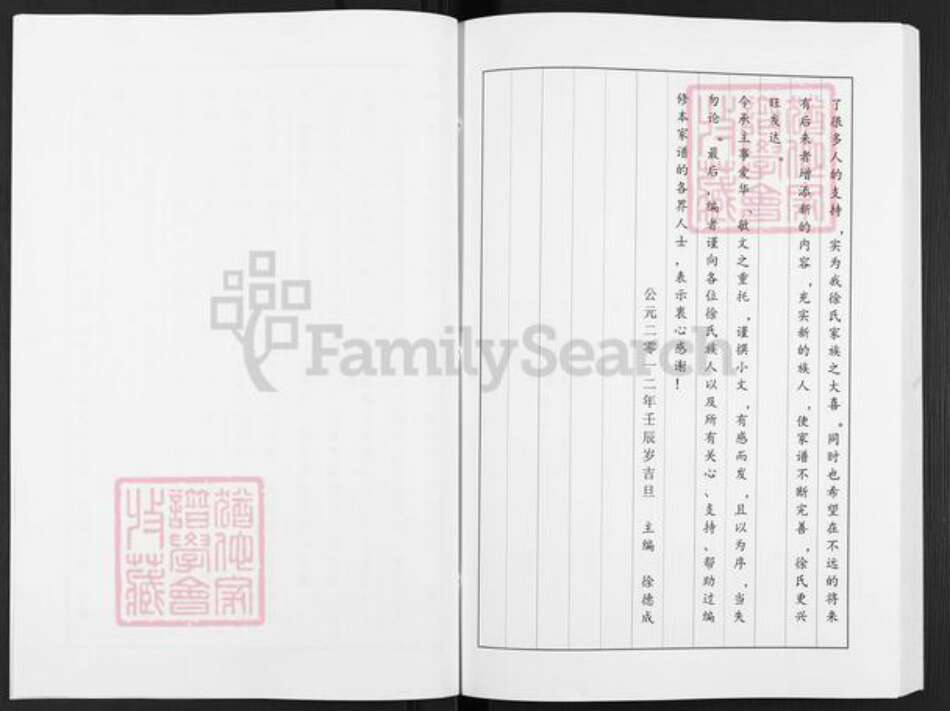 了很多人的支持，实为我徐氏家族之大喜。同时也希望在不远的将来
有后来者增添新的内容，充实新的族人，使家谱不断完善，徐氏更兴
旺发达。
令承主事爱华、敏文之重托，谨撰小文，有感而发，且以为序，当失
勿论。最后，编者谨向各位徐氏族人以及所有关心、支持、帮助过编
修本家谱的各界人士，表示衷心感谢！
公元二零一二年壬辰岁吉旦 主编 徐德成
FamilySearch
猶他家
譜學會
收藏
猶他家
譜學會
收藏